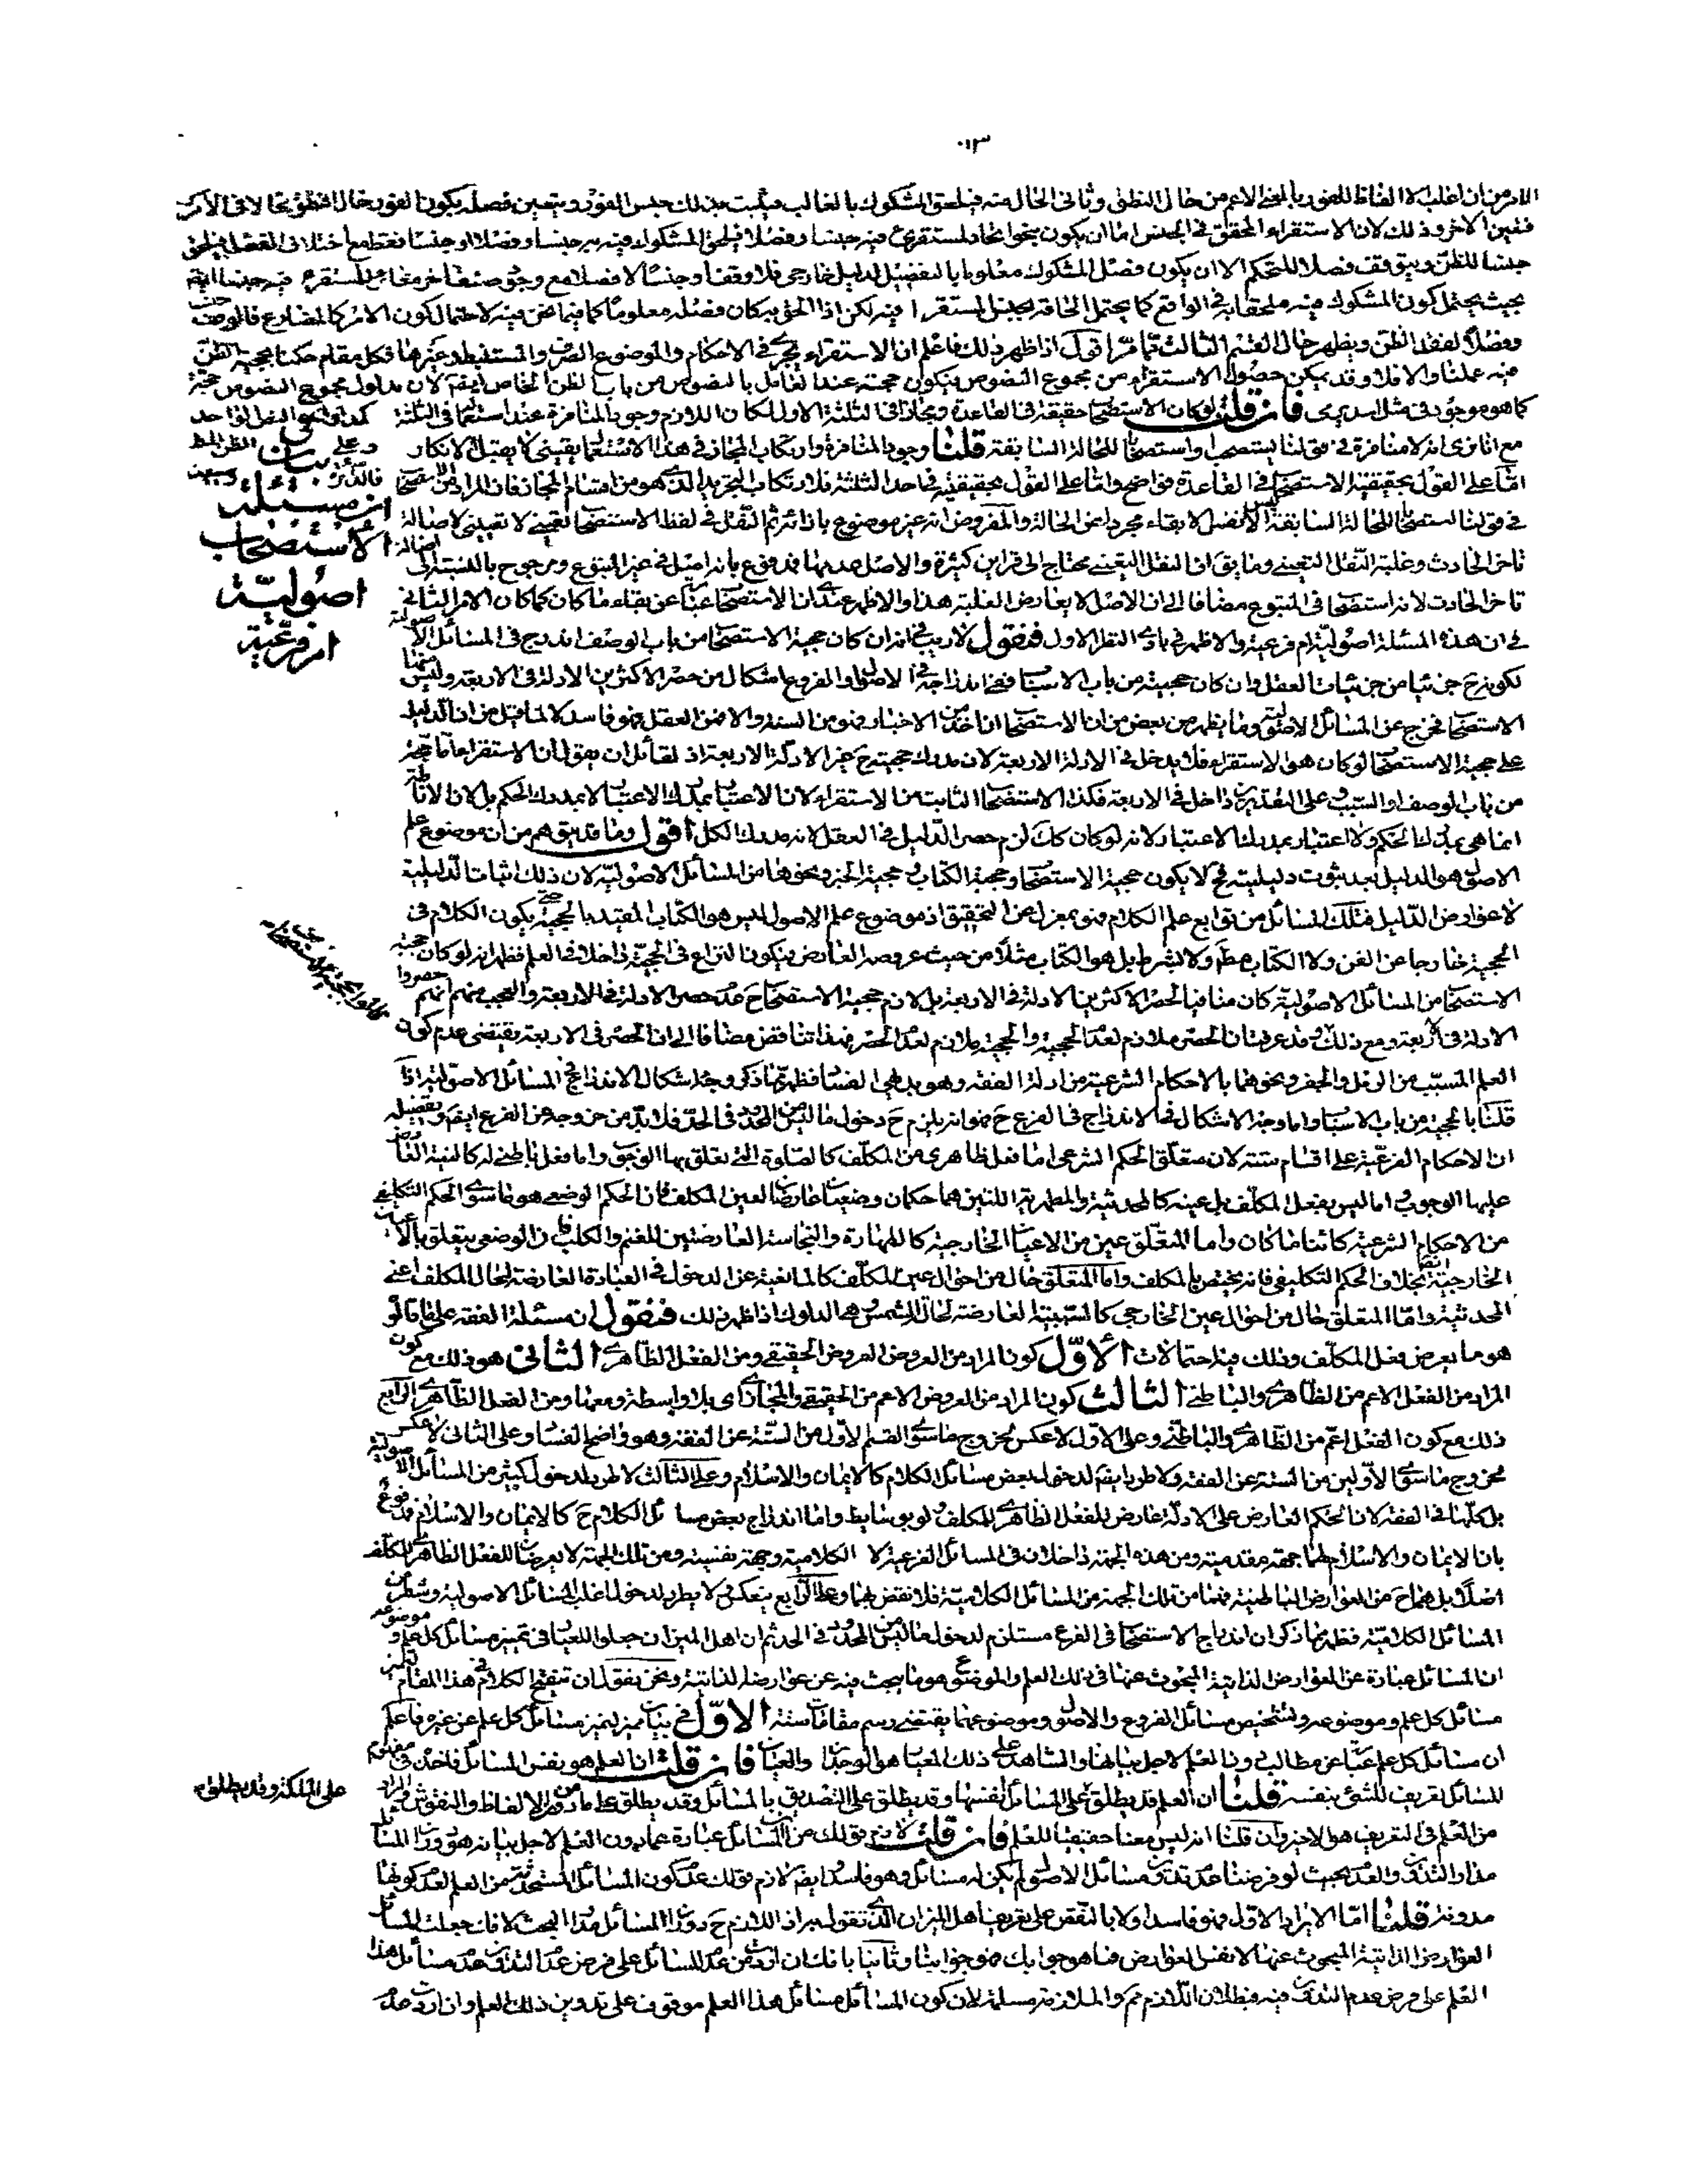 الامر من ان اغلب الالفاظ للفور بالمعنى الاعم من حال النطق وثانى الحال منه فيلحق المشكوك بالغالب فيثبت بذلك جنس الفور ويتعين فصله بكون الفور حال النطق بحالا فى الامر
ففيه الاخر وذلك لان الاستقراء المحقق فى الجنس اما ان يكون بنحو اتحاد المستقرء فيه جنسا وفصلا فيلحق المشكوك فيه به جنسا وفصلا او جنسا فقط مع اختلاف الفصل فيلحق
جنسا للظن ويتوقف فصلا للتحكم الا ان يكون فصل المشكوك معلوما بالتفصيل لدليل خارجى فلا وقف وجنسا لا فصلا مع وجود صنف اخر مغاير للمستقرء فيه جنسا ايضا
بحيث يحتمل كون المشكوك فيه ملحقا به فى الواقع كما يحتمل الحاقه بجنس المستقرء فيه لكن اذا الحق به كان فصله معلوما كما فيما نحن فيه لاحتمال كون الامر كالمضارع فالوقف جنسا
وفصلا لفقد الظن ويظهر حال القسم الثالث مما مر اقول اذا ظهر ذلك فاعلم ان الاستقراء يجرى فى الاحكام والموضوع الصرف والمستنبط وغيرها فكل مقام حكمنا بحجية الظن
فيه عملنا والا فلا وقد يمكن حصول الاستقراء من مجموع النصوص فيكون حجة عند القائل بالنصوص من باب الظن الخاص ايضا لان مدلول مجموع النصوص حجة
كما هو موجود فى مثل اسد يرمى فان قلت لو كان الاستصحاب حقيقة فى القاعدة ومجازا فى الثلثة الاول لكان اللازم وجود المنافرة عند استعماله فى الثلثة كمدلول النص الواحد
مع انا نرى انه لا منافرة فى قولنا يستصحب واستصحابا للحالة السابقة قلنا وجود المنافرة وارتكاب المجاز فى هذا الاستعمال يقينى لا يقبل الانكار
اما على القول بحقيقة الاستصحاب فى القاعدة فواضح واما على القول بحقيقته فى احد الثلثة فلارتكاب التجريد الذى هو من اقسام المجاز فان المراد من الاستصحاب
فى قولنا استصحابا للحالة السابقة ليس الا نفس الابقاء مجردا عن الحالة والمفروض انه غير موضوع بازائه ثم النقل فى لفظ الاستصحاب تعيينى لا تعينى لاصالة
تاخر الحادث وغلبة النقل التعينى وما يق ان النقل التعينى محتاج الى قراين كثيرة والاصل عدمها فمدفوع بانه اصل فى غير المتبوع ومرجوح بالنسبة الى اصالة
تاخر الحادث لانه استصحاب فى المتبوع مضافا الى ان الاصل لا يعارض الغلبة هذا والاظهر عندى ان الاستصحاب عبارة عن بقاء ما كان كما كان الامر الثانى
فى ان هذه المسئلة اصولية ام فرعية والاظهر فى بادى النظر الاول فنقول لا ريب فى انه ان كان حجية الاستصحاب من باب الوصف اندرج فى المسائل الاصولية
لكونه ح جزئيا من جزئيات العقل وان كان حجيته من باب الاسباب ففى اندراجه فى الاصول او الفروع اشكال من حصر الاكثرين الادلة فى الاربعة وليس منها
الاستصحاب فخرج عن المسائل الاصولية وما يظهر من بعض من ان الاستصحاب ان اخذ من الاخبار فهو من السنة والا فمن العقل فهو فاسد لا لما قيل من ان الدليل
على حجية الاستصحاب لو كان هو الاستقراء فلا يدخل فى الادلة الاربعة لان مدرك حجيته ح غير الادلة الاربعة اذ لقائل ان يقول ان الاستقراء اما حجة
من باب الوصف او السبب وعلى التقديرين داخل فى الاربعة فكذا الاستصحاب الثابت من الاستقراء لان الاعتبار بمدرك الاعتبار لا بمدرك الحكم بل لان الاناطة
انما هى بمدرك الحكم ولا اعتبار بمدرك الاعتبار لانه لو كان كك لزم حصر الدليل فى العقل لانه مدرك الكل اقول وما قد يتوهم من ان موضوع علم
الاصول هو الدليل بعد ثبوت دليليته فح لا يكون حجية الاستصحاب وحجية الكتاب وحجية الخبر ونحوها من المسائل الاصولية لان ذلك اثبات الدليلية
لا عوارض الدليل فتلك المسائل من توابع علم الكلام فهو بمعزل عن التحقيق اذ موضوع علم الاصول ليس هو الكتاب المقيد بالحجية حتى يكون الكلام فى
الحجية خارجا عن الفن ولا الكتاب مط ولا بشرط بل هو الكتاب مثلا من حيث عروضه العارض فيكون النزاع فى الحجية داخلا فى العلم فظهر انه لو كان حجية
الاستصحاب من المسائل الاصولية كان منافيا لحصر الاكثرين الادلة فى الاربعة بل لازم حجية الاستصحاب ح عدم حصر الادلة فى الاربعة والعجب منهم انهم حصروا
الادلة فى الاربعة ومع ذلك وقد عرفت ان الحصر ملازم لعدم الحجية والحجية ملازم لعدم الحصر فهذا تناقض مضافا الى ان الحصر فى الاربعة يقتضى عدم كون
العلم المسبب من الرمل والجفر ونحوهما بالاحكام الشرعية من ادلة الفقه وهو بديهى الفساد فظهر مما ذكر وجه اشكال الاندراج فى المسائل الاصولية اذا
قلنا بالحجية من باب الاسباب واما وجه الاشكال فى الاندراج فى الفرع ح فهو انه يلزم ح دخول ما ليس من الحدود فى الحد فلا بد من خروجه عن الفرع ايضا وتفصيله
ان الاحكام الفرعية على اقسام ستة لان متعلق الحكم الشرعى اما فعل ظاهرى من المكلف كالصلوة التى تعلق بها الوجوب واما فعل باطنى له كالنية العارض
عليها الوجوب اما ليس بفعل المكلف بل عينه كالمحدثية والمطهرية اللتين هما حكمان وضعيان عارضان لعين المكلف فان الحكم الوضعى هو ما سوى الحكم التكليفى
من الاحكام الشرعية كائنا ما كان واما المتعلق عين من الاعيان الخارجية كالطهارة والنجاسة العارضتين للغنم والكلب فان الوضعى يتعلق بالاعيان
الخارجية ايضا بخلاف الحكم التكليفى فانه يختص بالمكلف واما المتعلق حال من احوال عين المكلف كالمانعية عن الدخول فى العبادة العارضة لحال المكلف اعنى
المحدثية واما المتعلق حال من احوال عين الخارجى كالسببية العارضة لحال الشمس هى الدلوك اذا ظهر ذلك فنقول ان مسئلة الفقه على ما قالو
هو ما يعرض فعل المكلف وذلك فيه احتمالات الاول كون المراد من العروض العروض الحقيقى ومن الفعل الظاهرى الثانى هو ذلك مع كون
المراد من الفعل الاعم من الظاهرى والباطنى الثالث كون المراد من العروض الاعم من الحقيقى والمجازى اى بلا واسطة ومعها ومن الفعل الظاهرى الرابع
ذلك مع كون الفعل اعم من الظاهرى والباطنى وعلى الاول لا عكس لخروج ما سوى القسم الاول من الستة عن الفقه وهو واضح الفساد وعلى الثانى لا عكس
لخروج ما سوى الاولين من الستة عن الفقه ولا طرد ايضا لدخول بعض مسائل الكلام كالايمان والاسلام وعلى الثالث لا طرد لدخول كثير من المسائل الاصولية
بل كلها فى الفقه لان الحكم العارض على الادلة عارض للفعل الظاهرى للمكلف ولو بوسايط واما اندراج بعض مسائل الكلام ح كالايمان والاسلام فمدفوع
بان الايمان والاسلام لهما جهة مقدمية ومن هذه الجهة داخلان فى المسائل الفرعية لا الكلامية وجهة نفسية ومن تلك الجهة لا يعرضان للفعل الظاهرى للمكلف
اصلا بل هما ح من العوارض الباطنية فهما من تلك الجهة من المسائل الكلامية فلا نقض بهما وعلى الرابع ينعكس لا يطرد لدخول اغلب المسائل الاصولية وشطر من
المسائل الكلامية فظهر مما ذكر ان اندراج الاستصحاب فى الفرع مستلزم لدخول ما ليس من الحدود فى الحد ثم ان اهل الميزان جعلوا المعيار فى تميز مسائل كل علم وموضوعه
ان المسائل عبارة عن العوارض الذاتية المبحوث عنها فى ذلك العلم والموضوع هو ما يبحث فيه عن عوارضه الذاتية ونحن نقول ان تنقيح الكلام فى هذا المقام لتميز
مسائل كل علم وموضوعه وتشخيص مسائل الفروع والاصول وموضوعهما يقتضى رسم مقامات ستة الاول فى بيان مميز لتميز مسائل كل علم عن غيره فاعلم
ان مسائل كل علم عبارة عن مطالب دون العلم لاجل بيانها والشاهد على ذلك المعيار هو الوجدان والعيان فان قلت ان العلم هو نفس المسائل فاخذه فى مفهوم
المسائل تعريف للشئ بنفسه قلنا ان العلم قد يطلق على المسائل انفسها وقد يطلق على التصديق بالمسائل وقد يطلق على ما دون من الالفاظ والنقوش والمراد
من العلم فى التعريف هو الاخير وان قلنا انه ليس معنا حقيقيا للعلم فان قلت لازم قولك من ان المسائل عبارة عما دون العلم لاجل بيانه هو دوران المسائل
مدار التدوين والعدم بحيث لو فرضنا عدم تدوين مسائل الاصول لم يكن له مسائل وهو فاسد ايضا لازم قولك عدم كون المسائل المستحدثة من العلم لعدم كونها
مدونة قلنا اما الايراد الاول فهو فاسد اولا بالنقض على تعريف اهل الميزان الذى تقول به اذ اللازم ح دوران المسائل مدار البحث لانك جعلت المسائل
العوارض الذاتية المبحوث عنها لا نفس العوارض فما هو جوابك فهو جوابنا وثانيا بانك ان اردت من عدم المسائل على فرض عدم التدوين عدم مسائل هذا
العلم على فرض عدم التدوين فيه فبطلان اللازم مم والملازمة مسلمة لان كون المسائل مسائل هذا العلم موقوف على تدوين ذلك العلم وان اردت عدم
بيان
ان مسئلة
الاستصحاب
اصولية
ام فرعية
على الملكة وقد يطلق